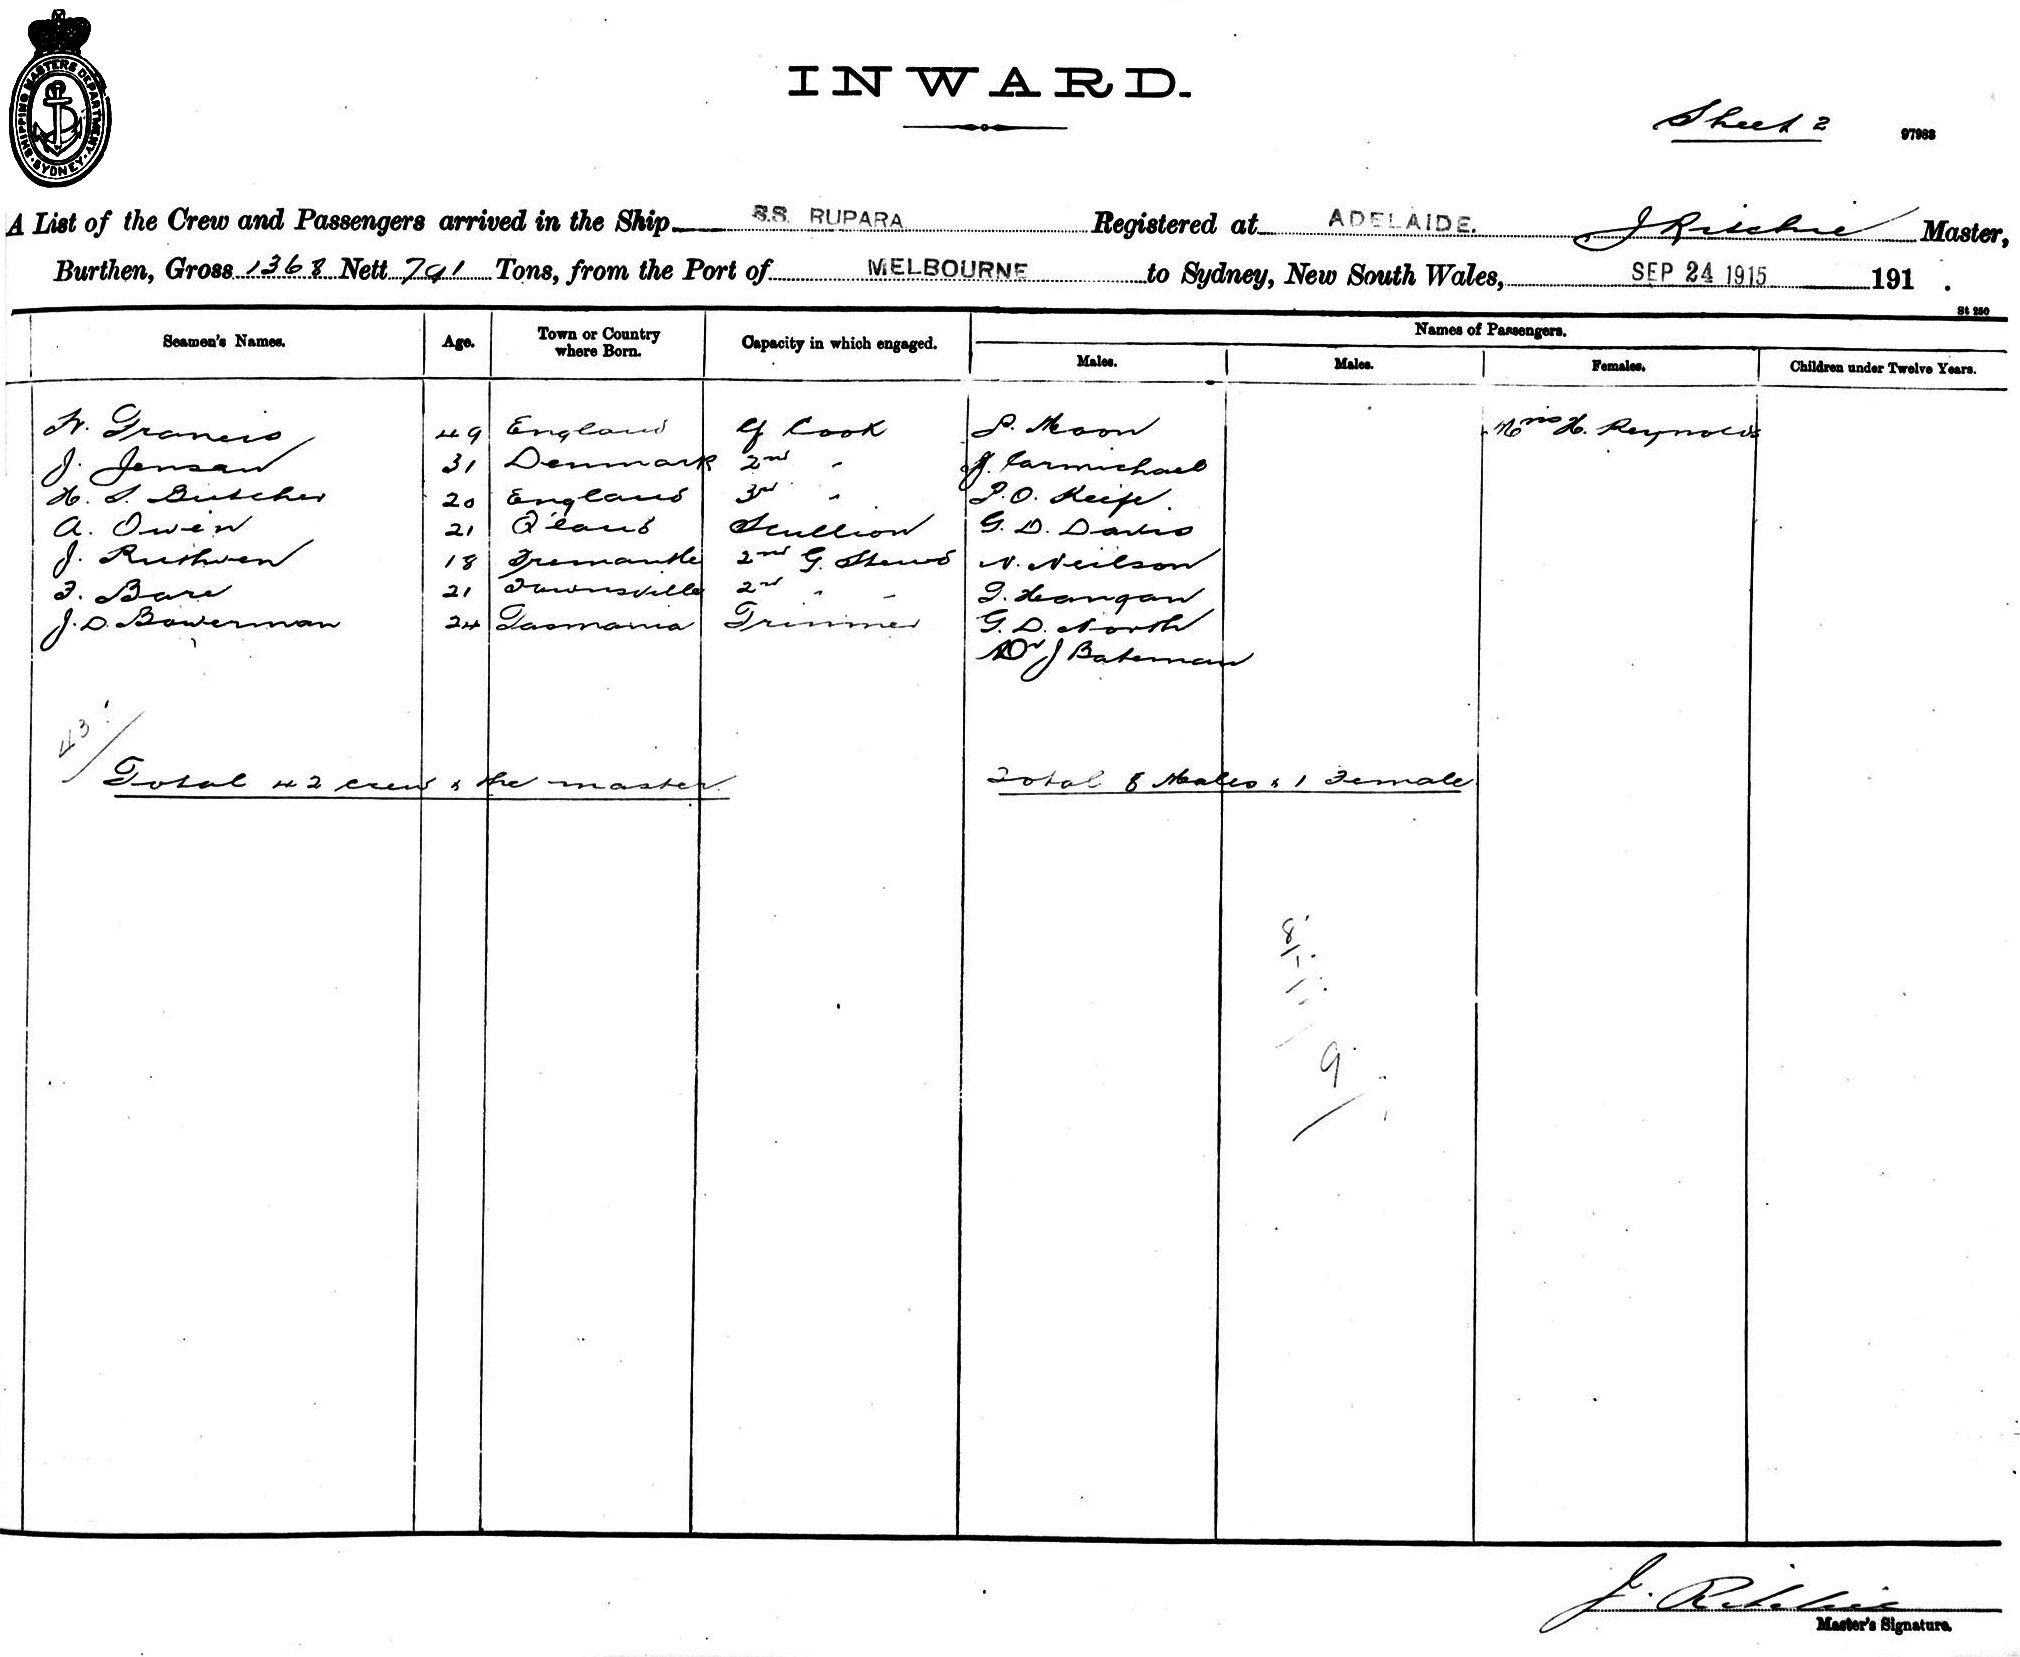 SHIPPING MASTERS DEPARTMENT · SYDNEY ·
INWARD.
Sheet 2
97983
A List of the Crew and Passengers arrived in the Ship S.S. RUPARA Registered at ADELAIDE. J Ritchie Master,
Burthen, Gross 1368 Nett 791 Tons, from the Port of MELBOURNE to Sydney, New South Wales, SEP 24 1915 191 .
St 250
Seamen's Names. Age. Town or Country where Born. Capacity in which engaged. Names of Passengers.
Males. Males. Females. Children under Twelve Years.
W. Francis 49 England Cf Cook P. Moon Mrs H. Reynolds
J. Jensen 31 Denmark 2nd " J. Carmichael
H. S. Butcher 20 England 3rd " P. O. Keife.
A. Owen 21 Q'land Scullion G. D. Davis
J. Ruthven 18 Fremantle 2nd G. Steward N. Neilson
F. Bare 21 Townsville 2nd " "
J. D. Bowerman 24 Tasmania Trimmer G. D. North
Dr J Bateman
43
Total 42 crew & the master. Total 8 Males & 1 Female
8
1
9
J. Ritchie
Master's Signature.